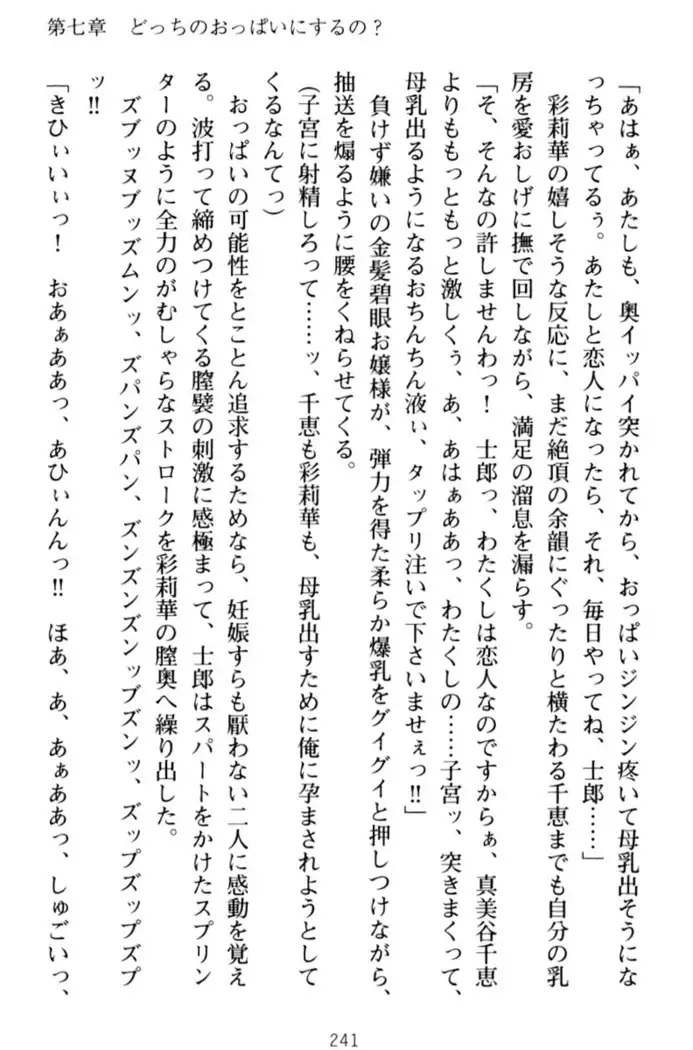 第七章　どっちのおっぱいにするの？
「あはぁ、あたしも、奥イッパイ突かれてから、おっぱいジンジン疼いて母乳出そうにな
っちゃってるぅ。あたしと恋人になったら、それ、毎日やってね、士郎……」
　彩莉華の嬉しそうな反応に、まだ絶頂の余韻にぐったりと横たわる千恵までも自分の乳
房を愛おしげに撫で回しながら、満足の溜息を漏らす。
「そ、そんなの許しませんわっ！　士郎っ、わたくしは恋人なのですからぁ、真美谷千恵
よりももっともっと激しくぅ、あ、あはぁああっ、わたくしの……子宮ッ、突きまくって、
母乳出るようになるおちんちん液ぃ、タップリ注いで下さいませぇっ‼」
　負けず嫌いの金髪碧眼お嬢様が、弾力を得た柔らか爆乳をグイグイと押しつけながら、
抽送を煽るように腰をくねらせてくる。
（子宮に射精しろって……ッ、千恵も彩莉華も、母乳出すために俺に孕まされようとして
くるなんてっ）
　おっぱいの可能性をとことん追求するためなら、妊娠すらも厭わない二人に感動を覚え
る。波打って締めつけてくる膣襞の刺激に感極まって、士郎はスパートをかけたスプリン
ターのように全力のがむしゃらなストロークを彩莉華の膣奥へ繰り出した。
　ズブッヌブッズムンッ、ズパンズパン、ズンズンズンッブズンッ、ズップズップズプ
ッ‼
「きひぃいぃっ！　おあぁああっ、あひぃんんっ‼　ほあ、あ、あぁああっ、しゅごいっ、
241